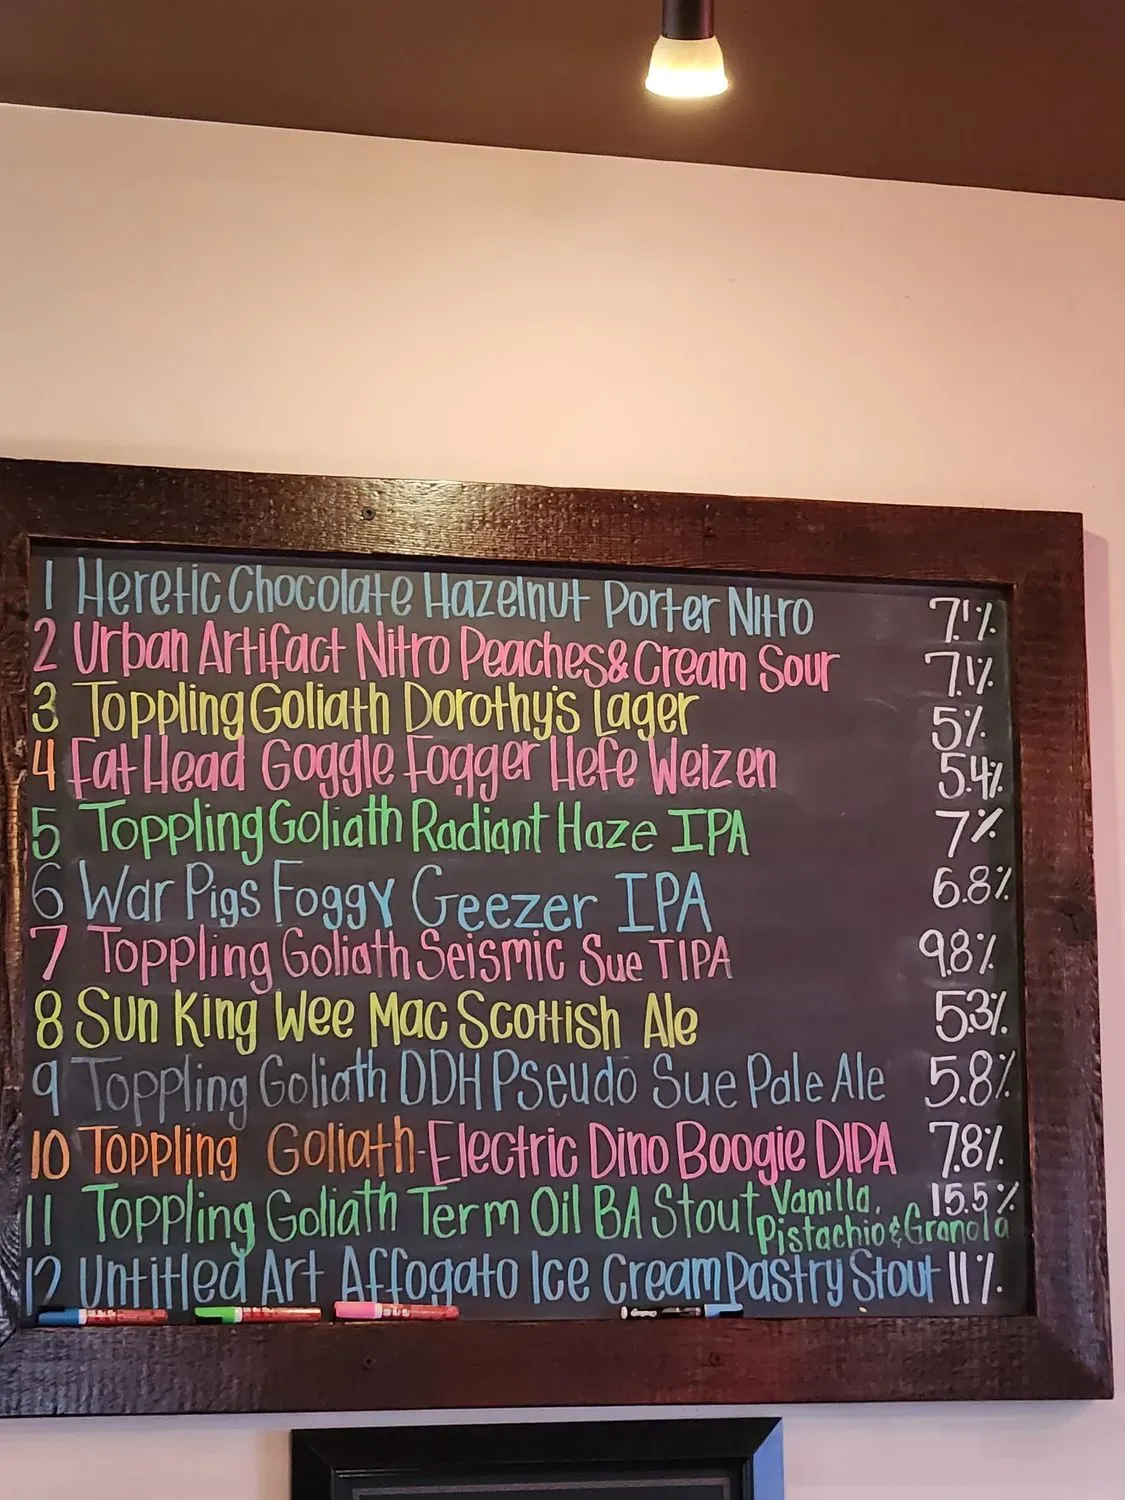 1 Heretic Chocolate Hazelnut Porter Nitro 7.1%
2 Urban Artifact Nitro Peaches & Cream Sour 7.1%
3 Toppling Goliath Dorothy's Lager 5%
4 Fat Head Goggle Fogger Hefe Weizen 5.4%
5 Toppling Goliath Radiant Haze IPA 7%
6 War Pigs Foggy Geezer IPA 6.8%
7 Toppling Goliath Seismic Sue TIPA 9.8%
8 Sun King Wee Mac Scottish Ale 5.3%
9 Toppling Goliath DDH Pseudo Sue Pale Ale 5.8%
10 Toppling Goliath-Electric Dino Boogie DIPA 7.8%
11 Toppling Goliath Term Oil BA Stout Vanilla, 15.5%
Pistachio & Granola
12 Untitled Art Affogato Ice Cream Pastry Stout 11%